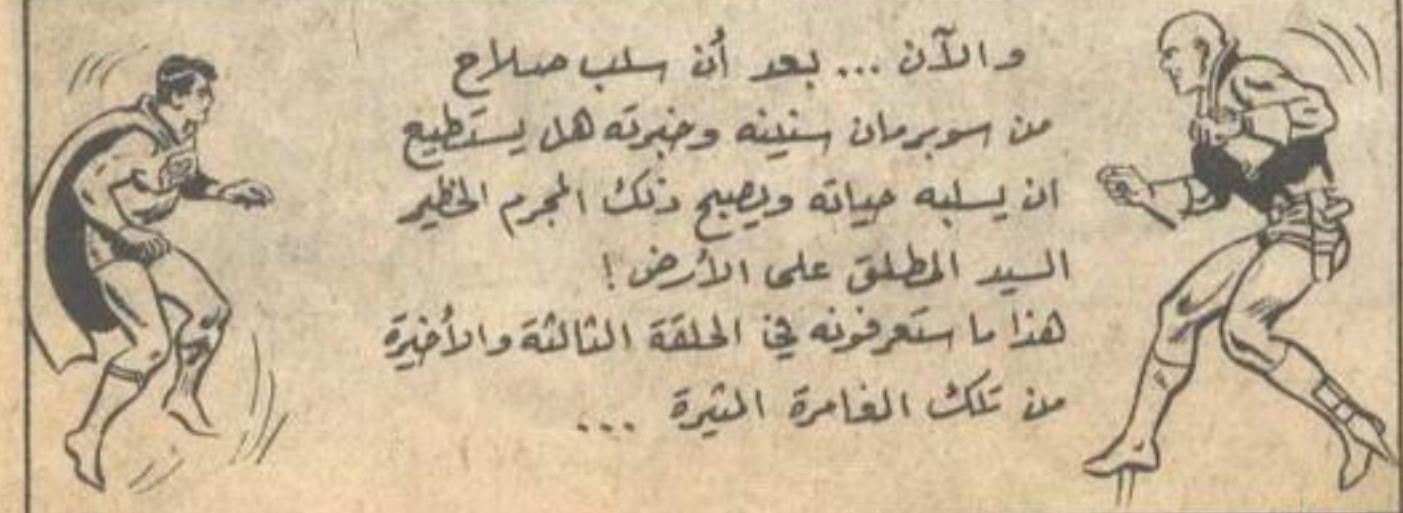 والآن ... بعد أن سلب صلاح
من سوبرمان سنينه وخبرته هل يستطيع
ان يسلبه حياته ويصبح ذلك المجرم الخطير
السيد المطلق على الأرض !
هذا ما ستعرفونه في الحلقة الثالثة والأخيرة
من تلك المغامرة المثيرة ...